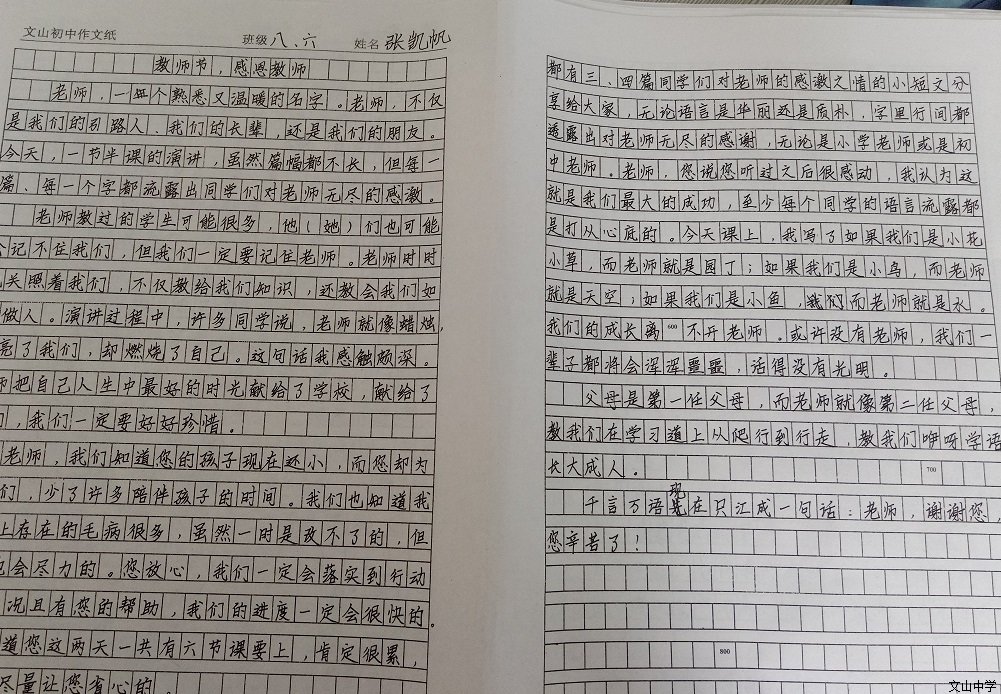 文山初中作文纸 班级 八、六 姓名 张凯帆
教师节，感恩教师
老师，一个熟悉又温暖的名字。老师，不仅
是我们的引路人、我们的长辈，还是我们的朋友。
今天，一节半课的演讲，虽然篇幅都不长，但每一
篇、每一个字都流露出同学们对老师无尽的感激。
老师教过的学生可能很多，他（她）们也可能
会记不住我们，但我们一定要记住老师。老师时时
关照着我们，不仅教给我们知识，还教会我们如
做人。演讲过程中，许多同学说，老师就像蜡烛，
亮了我们，却燃烧了自己。这句话我感触颇深。
师把自己人生中最好的时光献给了学校，献给了
们，我们一定要好好珍惜。
老师，我们知道您的孩子现在还小，而您却为
们，少了许多陪伴孩子的时间。我们也知道我
上存在的毛病很多，虽然一时是改不了的，但
也会尽力的。您放心，我们一定会落实到行动
况且有您的帮助，我们的进度一定会很快的。
道您这两天一共有六节课要上，肯定很累，
尽量让您省心的。
都有三、四篇同学们对老师的感激之情的小短文分
享给大家，无论语言是华丽还是质朴，字里行间都
透露出对老师无尽的感谢，无论是小学老师或是初
中老师。老师，您说您听过之后很感动，我认为这
就是我们最大的成功，至少每个同学的语言流露都
是打从心底的。今天课上，我写了如果我们是小花
小草，而老师就是园丁；如果我们是小鸟，而老师
就是天空；如果我们是小鱼，而老师就是水。
我们的成长离 600 不开老师。或许没有老师，我们一
辈子都将会浑浑噩噩，话得没有光明。
父母是第一任父母，而老师就像第二任父母，
教我们在学习道上从爬行到行走，教我们咿呀学语
长大成人。
700
千言万语现在只汇成一句话：老师，谢谢您，
您辛苦了！
800
文山中学